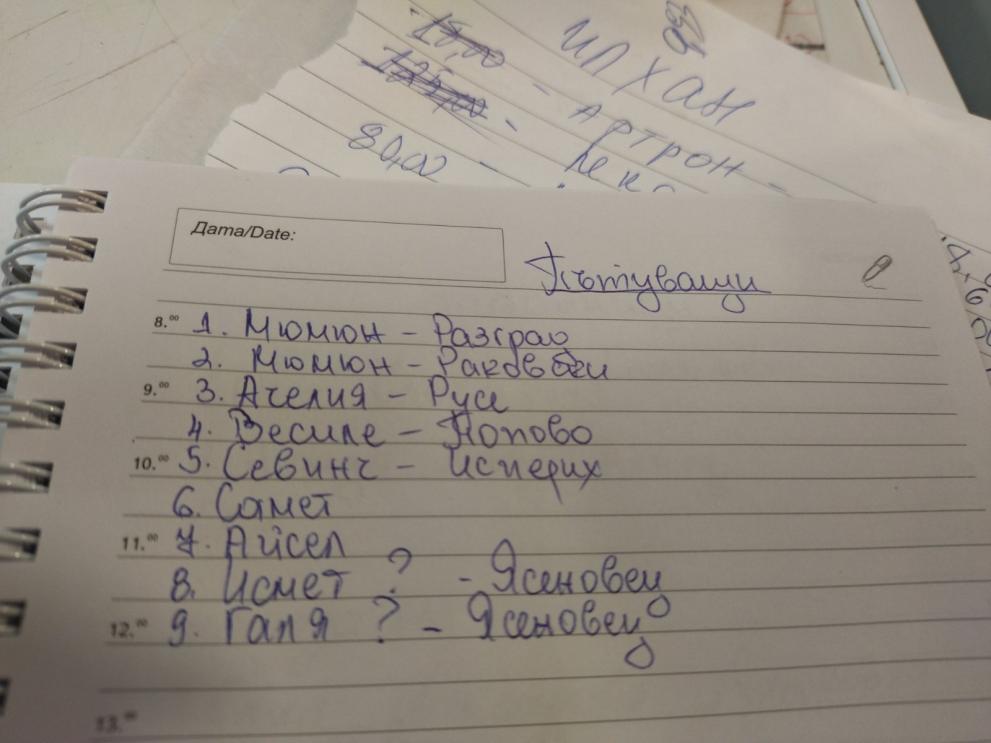 15,00
125,00 - АРТРОН -
ИЛХАН
80,00 -
Дата/Date:
Пътуващи
8.00 1. Мюмюн - Разград
2. Мюмюн - Раковски
9.00 3. Ахелия - Русе
4. Весиле - Попово
10.00 5. Севинч - Исперих
6. Самет
11.00 7. Айсел
8. Исмет ? - Ясеновец
12.00 9. Галя ? - Ясеновец
13.00